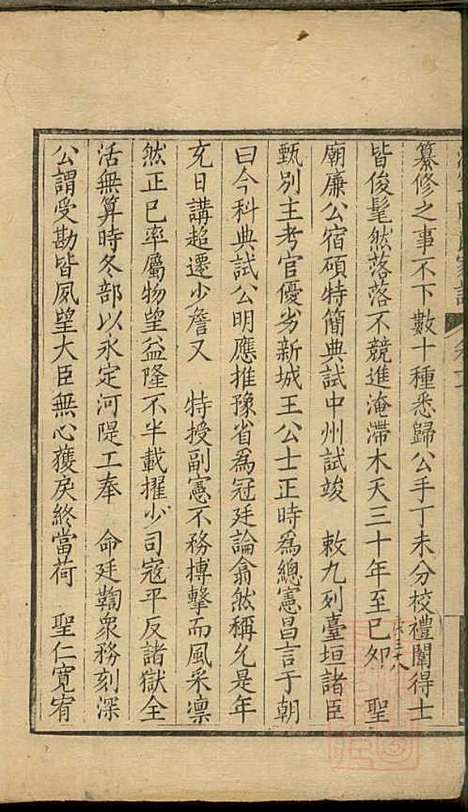 纂修之事不下數十種悉歸公手丁未分校禮闈得士
皆俊髦然落落不競進淹滯木天三十年至已夘　聖
廟廉公宿碩特簡典試中州試竣　敕九列臺垣諸臣
甄別主考官優劣新城王公士正時爲總憲昌言于朝
曰今科典試公明應推豫省爲冠廷論翕然稱允是年
充日講超遷少詹又　特授副憲不務搏擊而風采凛
然正已率屬物望益隆不半載擢少司寇平反諸獄全
活無算時冬部以永定河隄工奉　命廷鞫衆務刻深
公謂受勘皆夙望大臣無心獲戾終當荷　聖仁寛宥